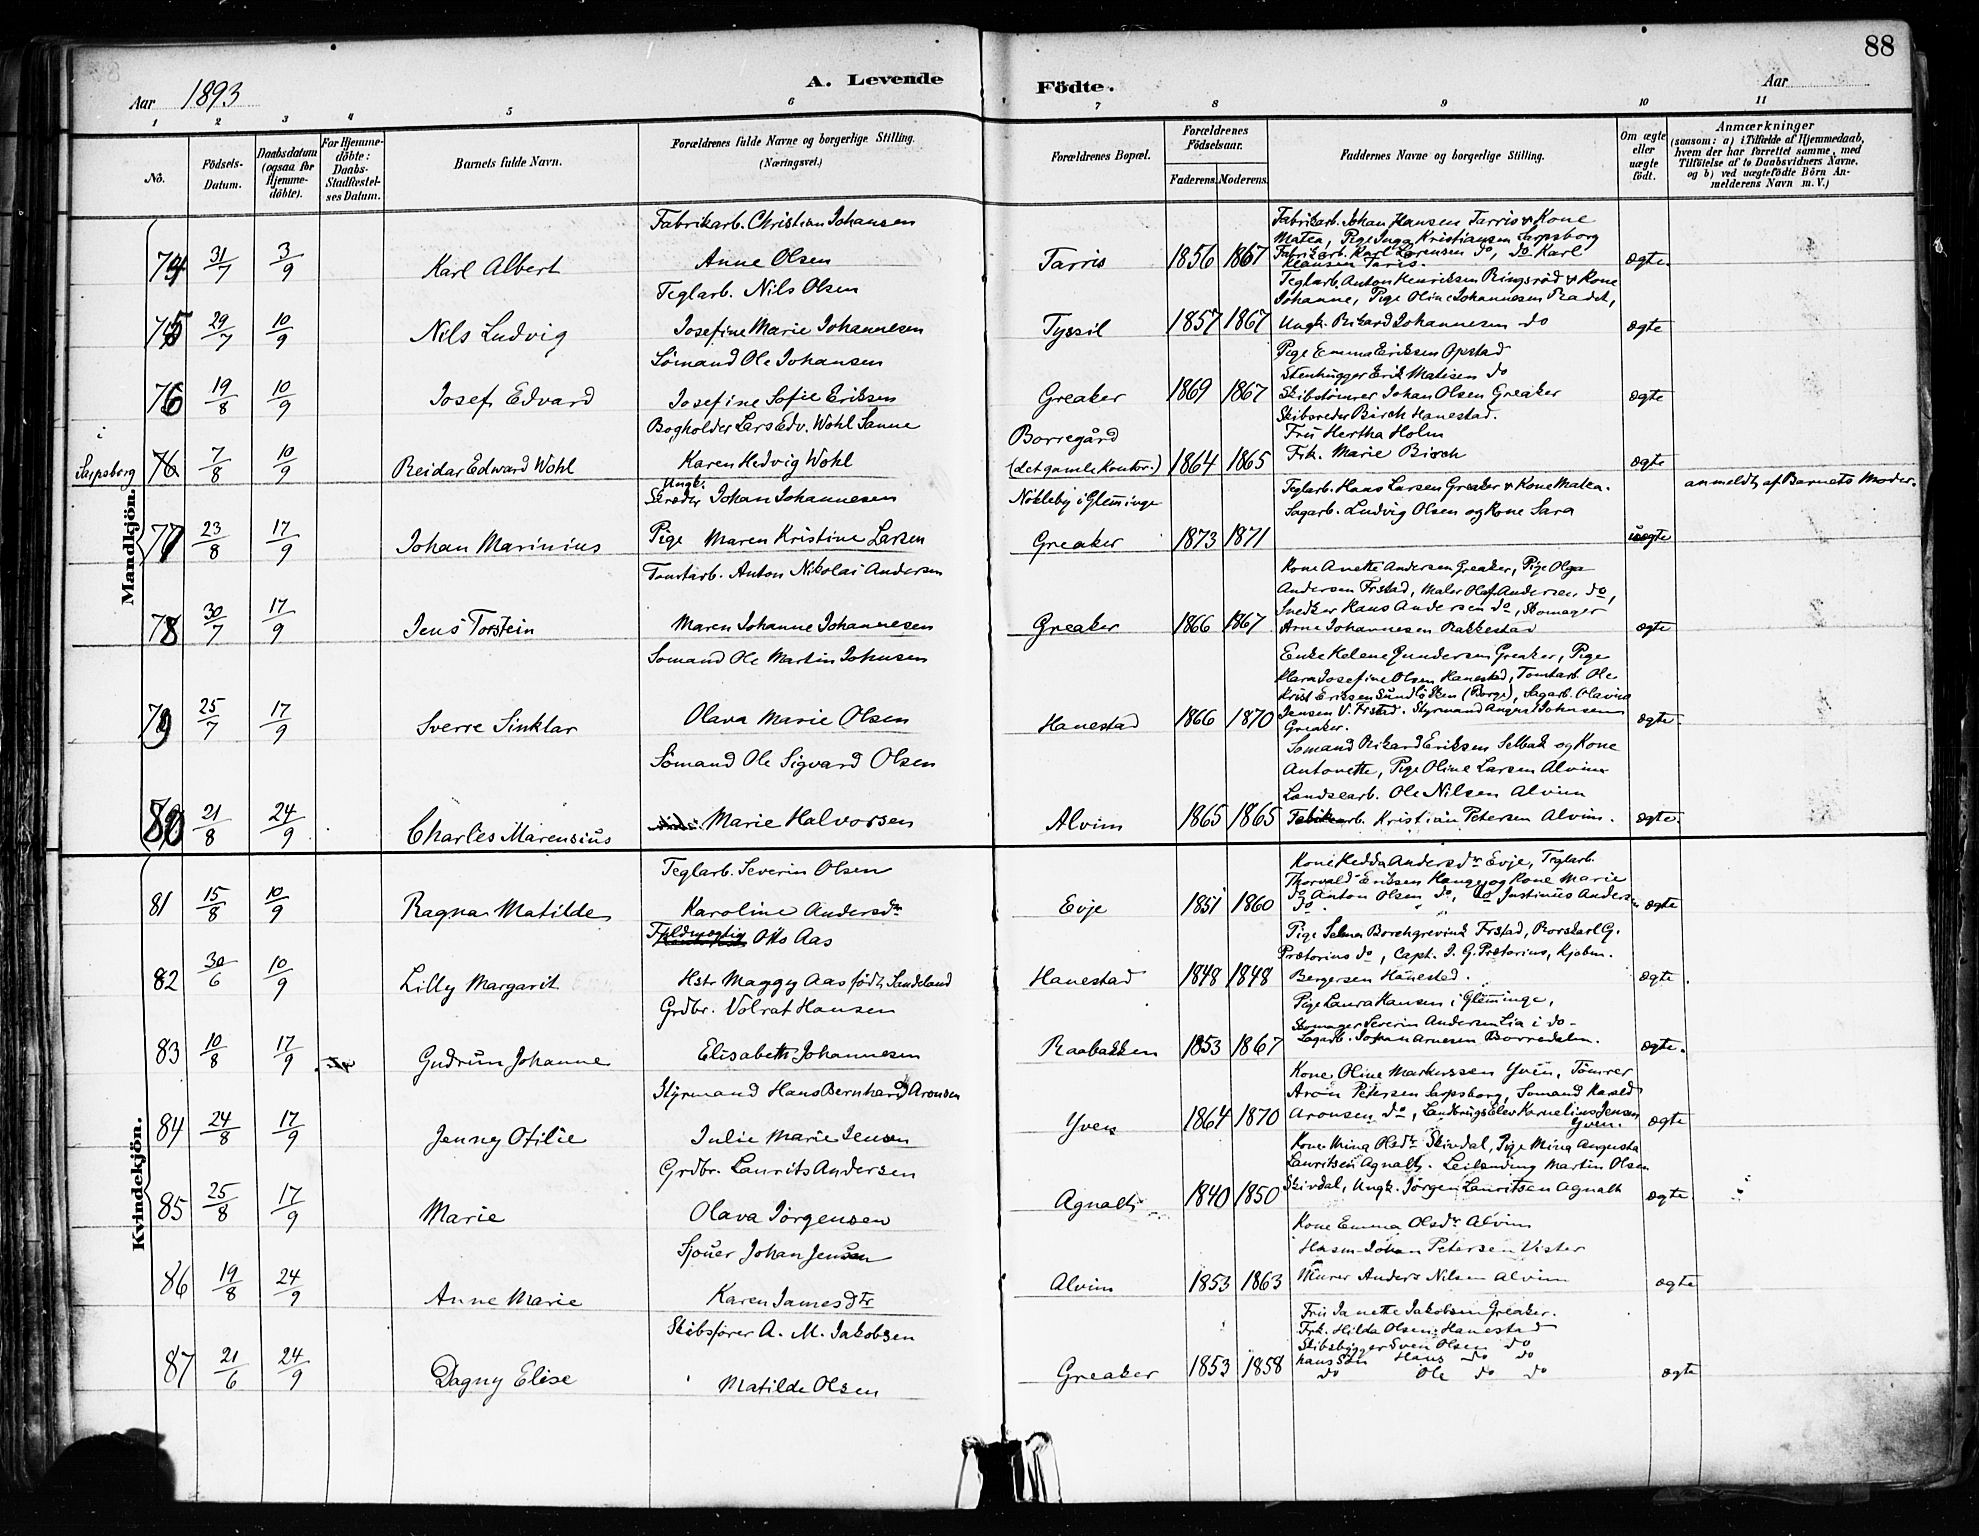 88
Aar 1893
A. Levende
Födte.
Aar
1 2 3 4 5 6 7 8 9 10 11
No.
Födsels-Datum.
Daabsdatum (ogsaa for Hjemme-döbte).
For Hjemme-döbte: Daabs-Stadfæstel-ses Datum.
Barnets fulde Navn.
Forældrenes fulde Navne og borgerlige Stilling.
(Næringsvei.)
Forældrenes Bopæl.
Forældrenes Födselsaar.
Faderens. Moderens.
Faddernes Navne og borgerlige Stilling.
Om ægte eller uægte födt.
Anmærkninger
(saasom: a) i Tilfælde af Hjemmedaab,
hvem der har forrettet samme, med
Tilföielse af to Daabsvidners Navne,
og b) ved uægtefödte Börn An-
melderens Navn m. V.)
Mandkjön.
74 31/7 3/9 Karl Albert
Fabrikarb. Christian Johansen
Anne Olsen
Tarris 1856 1867
Fabrikarb. Johan Hansen Tarris & Kone
Matea, Pige Inga Kristiansen Sarpsborg
Fabrikarb. Karl Lorensen do, do Karl
Klausen Tarris.
ægte.
75 29/7 10/9 Nils Ludvig
Teglarb. Nils Olsen
Josefine Marie Johannesen
Tyssil 1857 1867
Teglarb. Anton Henriksen Ringsrød & Kone
Johanne, Pige Oline Johannesen Radet,
Ungk. Rikard Johannesen do
ægte
76 19/8 10/9 Josef Edvard
Sømand Ole Johansen
Josefine Sofie Eriksen
Greaker 1869 1867
Pige Emma Eriksen Opstad
Stenhugger Erik Matisen do
Skibstømrer Johan Olsen Greaker
ægte
i Sarpsborg 76 7/8 10/9 Reidar Edward Wohl
Bogholder Lars Edv. Wohl Sanne
Karen Hedvig Wohl
Borregård
(det gamle Kontor.) 1864 1865
Skibsreder Birch Hanestad.
Fru Hertha Holm
Frk. Marie Birch
ægte
77 23/8 17/9 Johan Marinius
Ungk. Skræder Johan Johannesen
Pige Maren Kristine Larsen
Nokleby i Glemminge
Greaker 1873 1871
Teglarb. Hans Larsen Greaker & Kone Matea.
Sagarb. Ludvig Olsen og Kone Sara
uægte
anmeldt af Barnets Moder.
78 30/7 17/9 Jens Torstein
Tomtarb. Anton Nikolai Andersen
Maren Johanne Johannesen
Greaker 1866 1867
Kone Anette Andersen Greaker, Pige Olga
Andersen Frstad, Maler Olaf Andersen do,
Snedker Hans Andersen do, Skomager
Arne Johannesen Rakkestad
ægte
79 25/7 17/9 Sverre Sinklar
Sømand Ole Martin Johnsen
Olava Marie Olsen
Hanestad 1866 1870
Enke Helene Gundersen Greaker, Pige
Klara Josefine Olsen Hanestad, Tomtarb. Ole
Krist Eriksen Sundløkken (Borge), Sagarb. Olavius
Jensen V. Frstad. Styrmand August Johnsen
Greaker.
ægte
80 21/8 24/9 Charles Marensius
Sømand Ole Sigvard Olsen
Marie Halvorsen
Alvim 1865 1865
Sømand Rikard Eriksen Selbak og Kone
Antonette, Pige Oline Larsen Alvim
Landsearb. Ole Nilsen Alvim
Fabrikarb. Kristian Petersen Alvim.
ægte
Kvindekjön.
81 15/8 10/9 Ragna Matilde
Teglarb. Severin Olsen
Karoline Andersdtr
Evje 1851 1860
Kone Hedda Andersdtr Evje, Teglarb.
Thorvald Eriksen Hauge og Kone Marie
do. Anton Olsen do, do Justinus Andersen
do
ægte
82 30/6 10/9 Lilly Margarit
Fuldmægtig Otto Aas
Hstr Maggy Aas født Sandeland
Hanestad 1848 1848
Pige Selma Borchgrevink Frstad, Rorskarl G.
Prætorius do, Capt. J. G. Prætorius, Kjøbm.
Bergersen Hanestad.
ægte.
83 10/8 17/9 Gudrun Johanne
Grdbr. Volrat Hansen
Elisabeth Johannesen
Raabakken 1853 1867
Pige Laura Hansen i Glemminge,
Skomager Severin Andersen Lia i do-
Sagarb. Johan Arnesen Borredalen.
ægte.
84 24/8 17/9 Jenny Otilie
Styrmand Hans Bernhard Aronsen
Julie Marie Jensen
Yven 1864 1870
Kone Oline Markussen Yven, Tømrer
Aron Petersen Sarpsborg, Sømand Harald
Aronsen do, Landbrugselev Kornelius Jensen
Yven.
ægte
85 25/8 17/9 Marie
Grdbr. Laurits Andersen
Olava Jørgensen
Agnalt 1840 1850
Kone Mina Olsdtr Skivdal, Pige Mina Augusta
Lauritsen Agnalt. Leilending Martin Olsen
Skivdal, Ungk. Jørgen Lauritsen Agnalt
ægte
86 19/8 24/9 Anne Marie
Sjouer Johan Jensen
Karen Jamesdtr
Alvim 1853 1863
Kone Emma Olsdtr Alvim
Husm. Johan Petersen Vister
Murer Anders Nilsen Alvim
ægte
87 21/6 24/9 Dagny Elise
Skibsfører A. M. Jakobsen
Matilde Olsen
Greaker 1853 1858
Fru Janette Jakobsen Greaker.
Frk. Hilda Olsen Hanestad
Skibsbygger Sven Olsen do
hans Søn Hans do do
do Ole do do
ægte